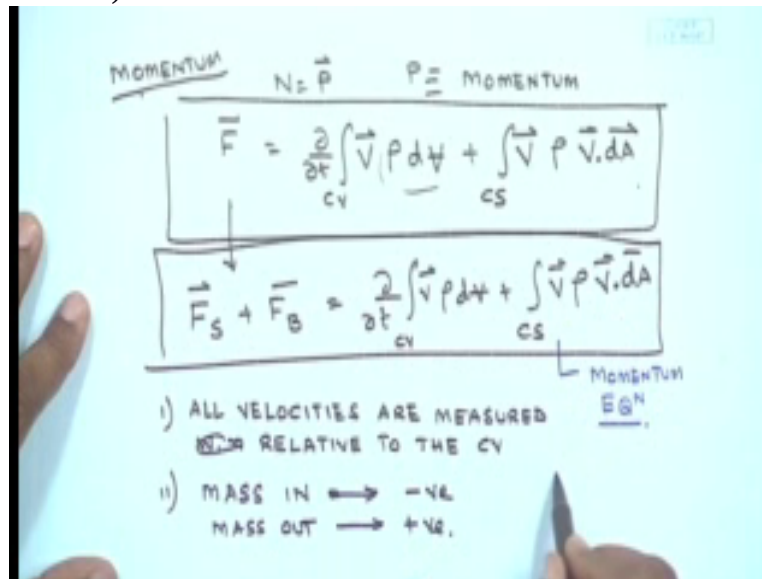 MOMENTUM N = P⃗ P ≡ MOMENTUM
F̅ = ∂/∂t ∫ V⃗ ρ dV̶ + ∫ V⃗ ρ V⃗.dA⃗
CV CS
F⃗S + F̅B = ∂/∂t ∫ V⃗ ρ dV̶ + ∫ V⃗ ρ V⃗.dA̅
CV CS
MOMENTUM
EQN.
i) ALL VELOCITIES ARE MEASURED
RELATIVE TO THE CV
ii) MASS IN → -ve
MASS OUT → +ve.